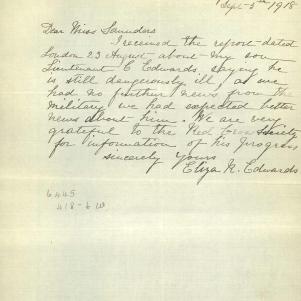 Sept - 5th 1918
Dear Miss Saunders
I received the report dated
London 23 August about my son
Lieutenant C Edwards, saying he
is still dangerously ill, as we
had no further news from the
military we had expected better
news about him. We are very
grateful to the Red Cross Society
for information of his progress
sincerely yours
Eliza K. Edwards
6445